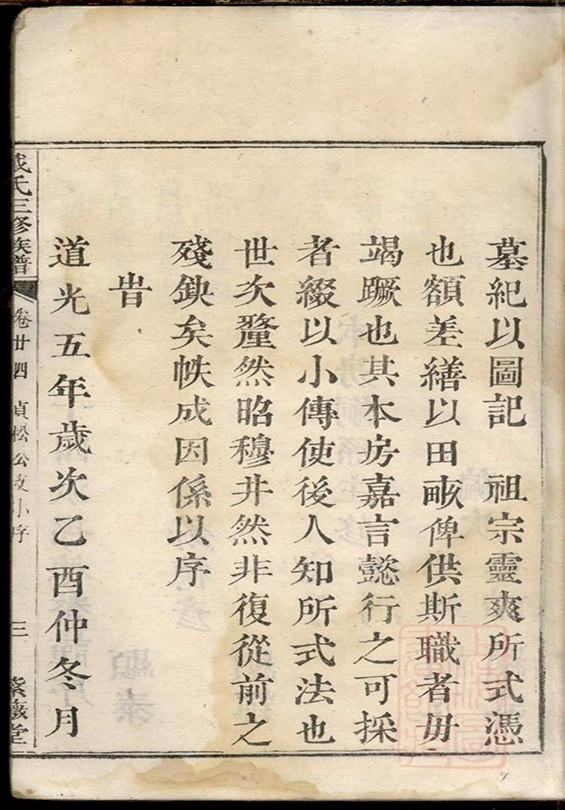 墓紀以圖記　祖宗靈爽所式憑
也額差繕以田畞俾供斯職者毋
竭蹶也其本房嘉言懿行之可採
者綴以小傳使後人知所式法也
世次釐然昭穆井然非復從前之
殘缺矣帙成因係以序
旹
道光五年歲次乙酉仲冬月
戴氏三修族譜　卷廿四　貞松公支小序　三　紫薇堂